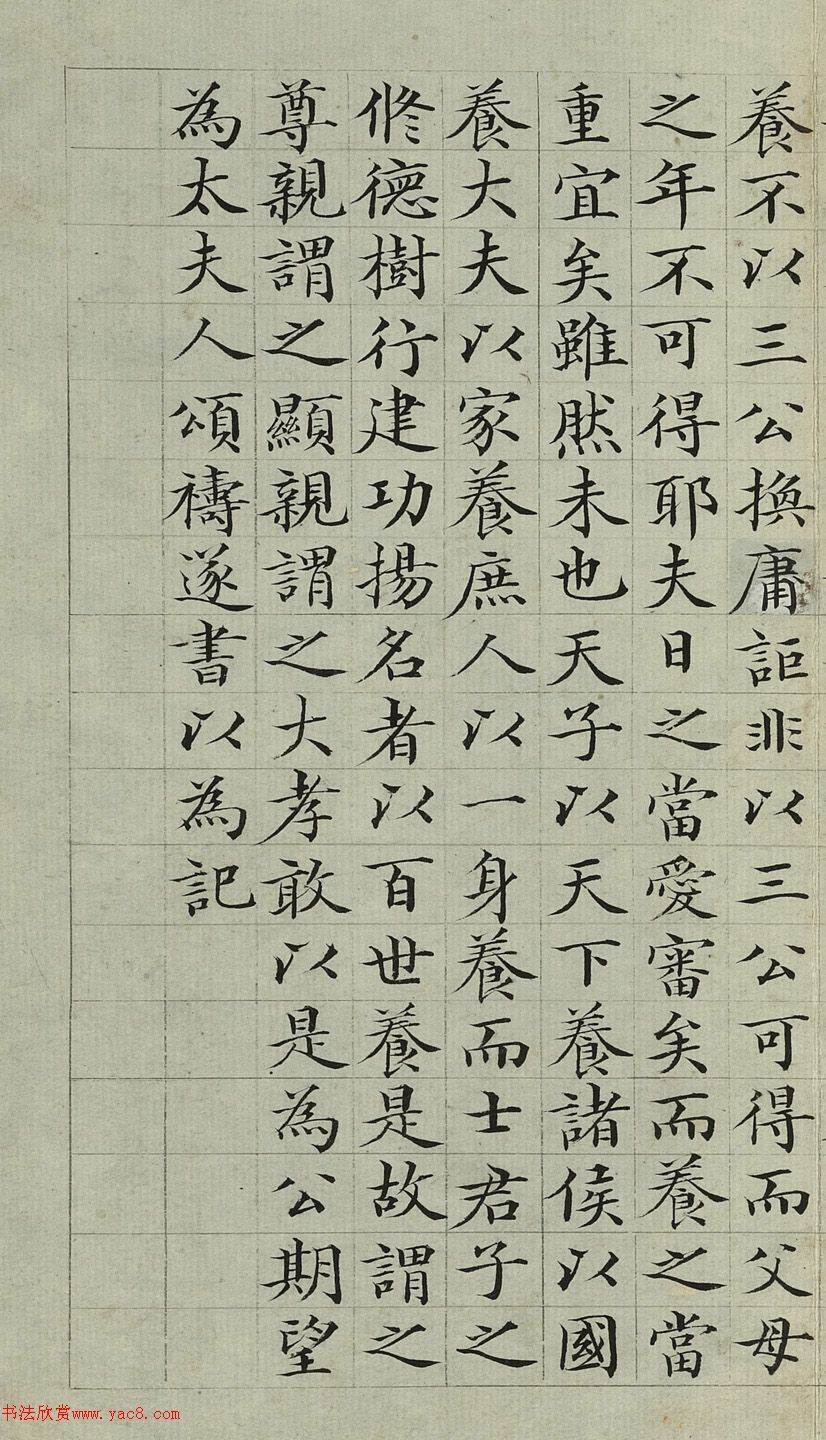 養不以三公換庸詎非以三公可得而父母
之年不可得耶夫日之當愛審矣而養之當
重宜矣雖然未也天子以天下養諸侯以國
養大夫以家養庶人以一身養而士君子之
修德樹行建功揚名者以百世養是故謂之
尊親謂之顯親謂之大孝敢以是為公期望
為太夫人頌禱遂書以為記
书法欣赏www.yac8.com